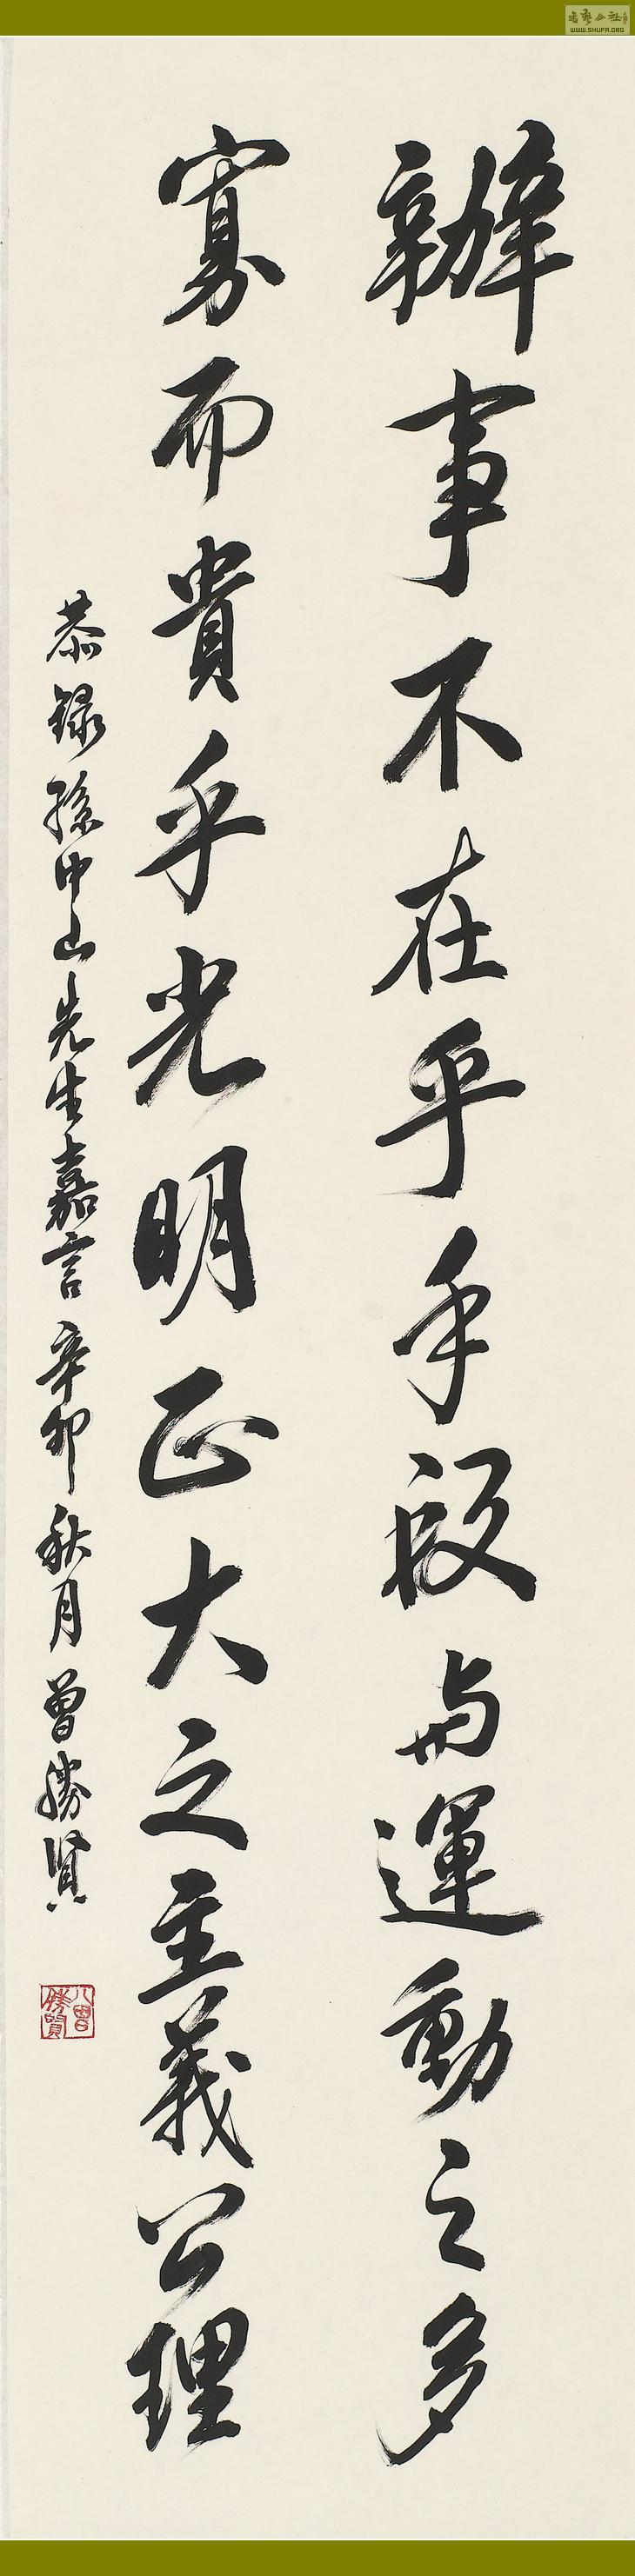 辦事不在乎手段與運動之多
寡而貴乎光明正大之主義公理
恭錄孫中山先生嘉言辛卯秋月曾勝賢
WWW.SHUFA.ORG